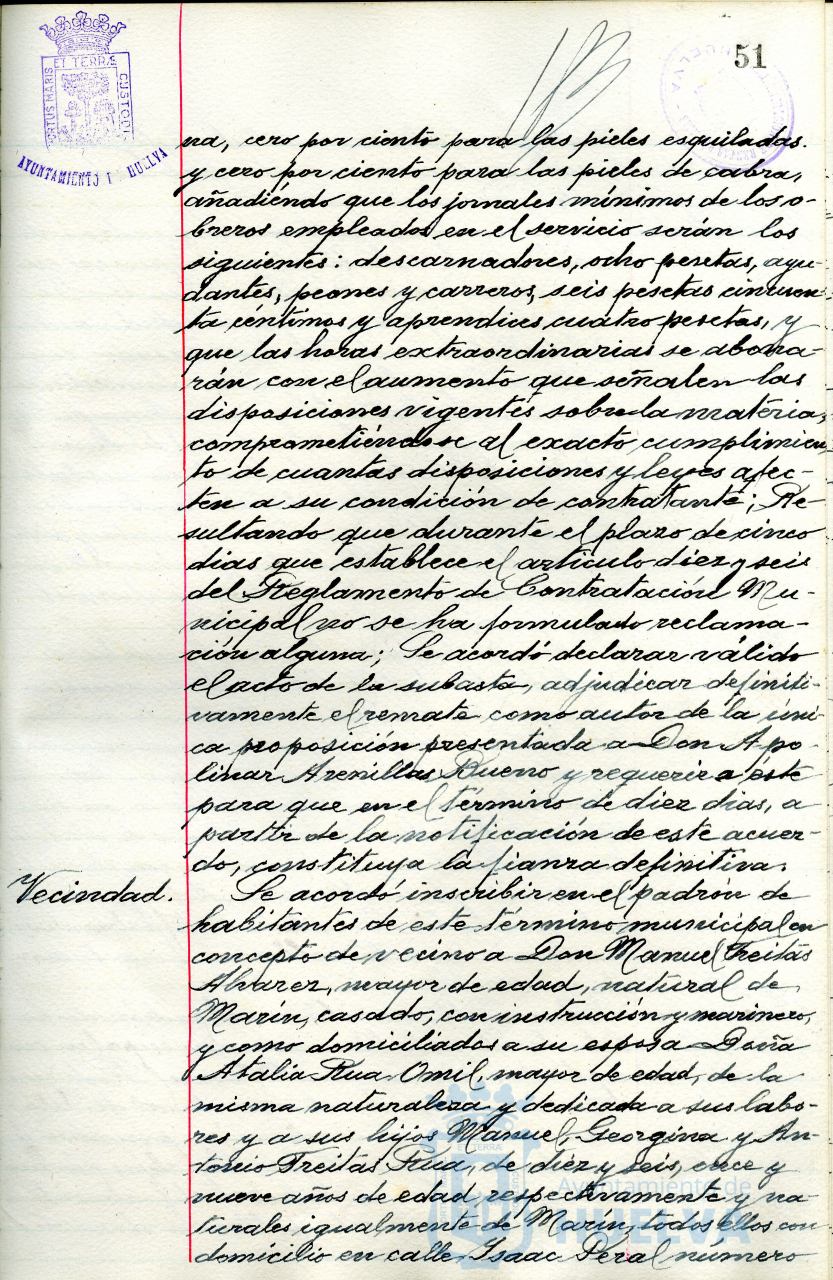 51
ET TERRÆ
PORTUS MARIS
CUSTODIA
AYUNTAMIENTO DE HUELVA
na, cero por ciento para las pieles esquiladas
y cero por ciento para las pieles de cabra,
añadiéndo que los jornales mínimos de los o-
breros empleados en el servicio serán los
siguientes: descarnadores, ocho pesetas, ayu-
dantes, peones y carreros, seis pesetas cincuen-
ta céntimos y aprendices cuatro pesetas, y
que las horas extraordinarias se abona-
rán con el aumento que señalen las
disposiciones vigentes sobre la materia,
comprometiéndose al exacto cumplimien-
to de cuantas disposiciones y leyes afec-
ten a su condición de contratante; Re-
sultando que durante el plazo de cinco
dias que establece el artículo diez y seis
del Reglamento de Contratación Mu-
nicipal no se ha formulado reclama-
ción alguna; Se acordó declarar válido
el acto de la subasta, adjudicar definiti-
vamente el remate como autor de la úni-
ca proposición presentada a Don Apo-
linar Arenillas Bueno y requerir a éste
para que en el término de diez dias, a
partir de la notificación de este acuer-
do, constituya la fianza definitiva.
Vecindad.
Se acordó inscribir en el padrón de
habitantes de este término municipal en
concepto de vecino a Don Manuel Freitas
Alvarez, mayor de edad, natural de
Marín, casado, con instrucción y marinero,
y como domiciliados a su esposa Doña
Atalia Rua Omil, mayor de edad, de la
misma naturaleza y dedicada a sus labo-
res y a sus hijos Manuel, Georgina y An-
tonio Freitas Rua, de diez y seis, once y
nueve años de edad respectivamente y na-
turales igualmente de Marín, todos ellos con
domicilio en calle Isaac Peral número
Ayuntamiento de
HUELVA